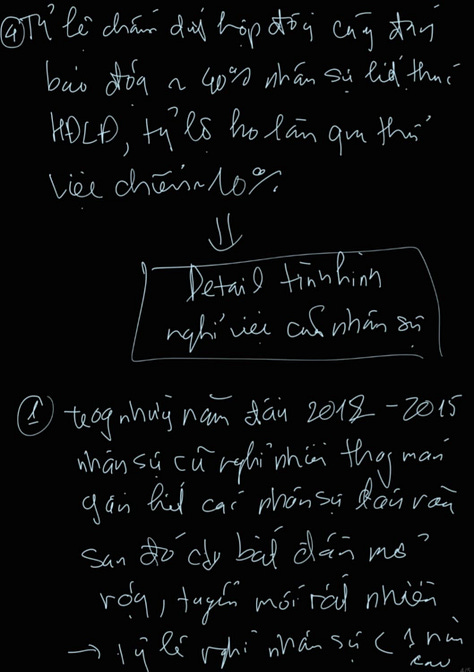 ④ Tỷ lệ chấm dứt hợp đồng cũng đáng
báo động ~ 40% nhân sự kết thúc
HĐLĐ, tỷ lệ ko làm qua thử
việc chiếm ~ 10%
⇓
Detail tình hình
nghỉ việc của nhân sự
① trong những năm đầu 2012 - 2015
nhân sự cũ nghỉ nhiều
gần hết các nhân sự
sau đó cty bắt đầu mở
rộng, tuyển mới rất nhiều
→ tỷ lệ nghỉ nhân sự < 1 năm